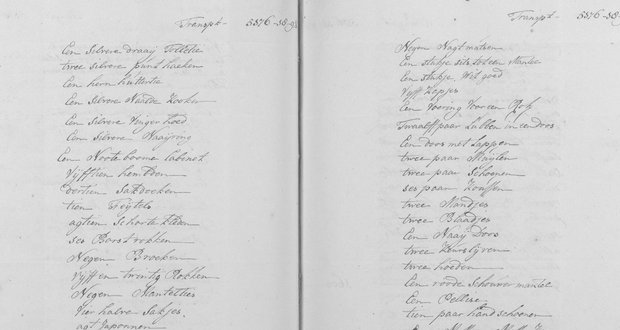 Transpt 5576-58-9
Een Silvere draay
twee silvere punt haeken
Een
Een Silvere Naalde Kooker
Een Silvere Vinger hoed
Een Silvere Naayring
Een Nooteboome Cabinet
Vijftien hemden
dertien Sakdoeken
tien
agtien Schorte kleden
Ses Borstrokken
Negen Broeken
Vijff en twintig Rokken
Negen Mantelties
Vier halve Sakjes
agt Japonnen
Transpt 5576-58-9
Negen Nagt mutsen
Een stukje sits tot een Mantel
Een stukje Wit goed
Vijff Kapjes
Een Voering Voor een Rok
Twaalff paar Lubben in een doos
Een doos met Lappen
twee paar Muylen
twee paar Schoenen
ses paar Koussen
twee Mandjes
twee Blaadjes
Een Naay Doos
twee Keurslyven
twee hoeden
Een roode Schouwer mantel
Een Pellise
tien paar handschoenen